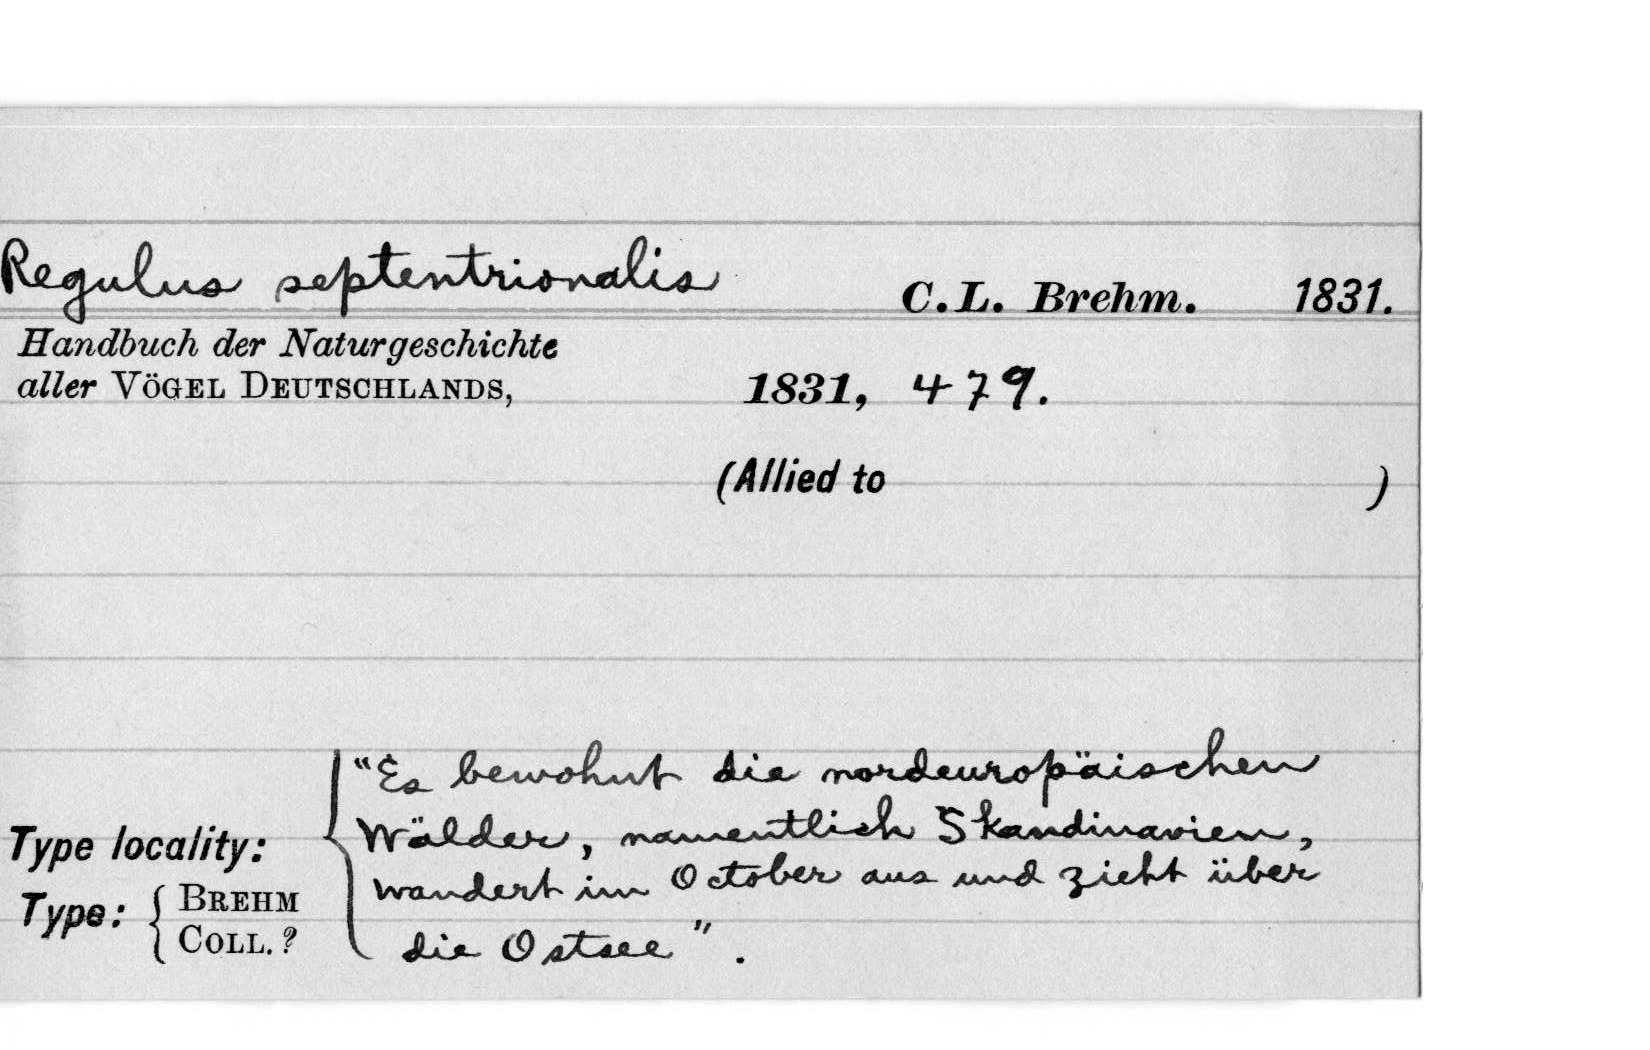 Regulus septentrionalis C.L. Brehm. 1831.
Handbuch der Naturgeschichte
aller VÖGEL DEUTSCHLANDS, 1831, 479.
(Allied to )
"Es bewohnt die nordeuropäischen
Wälder, namentlich Skandinavien,
Type locality:
wandert im October aus und zieht über
Type: { BREHM
COLL. ?
die Ostsee".